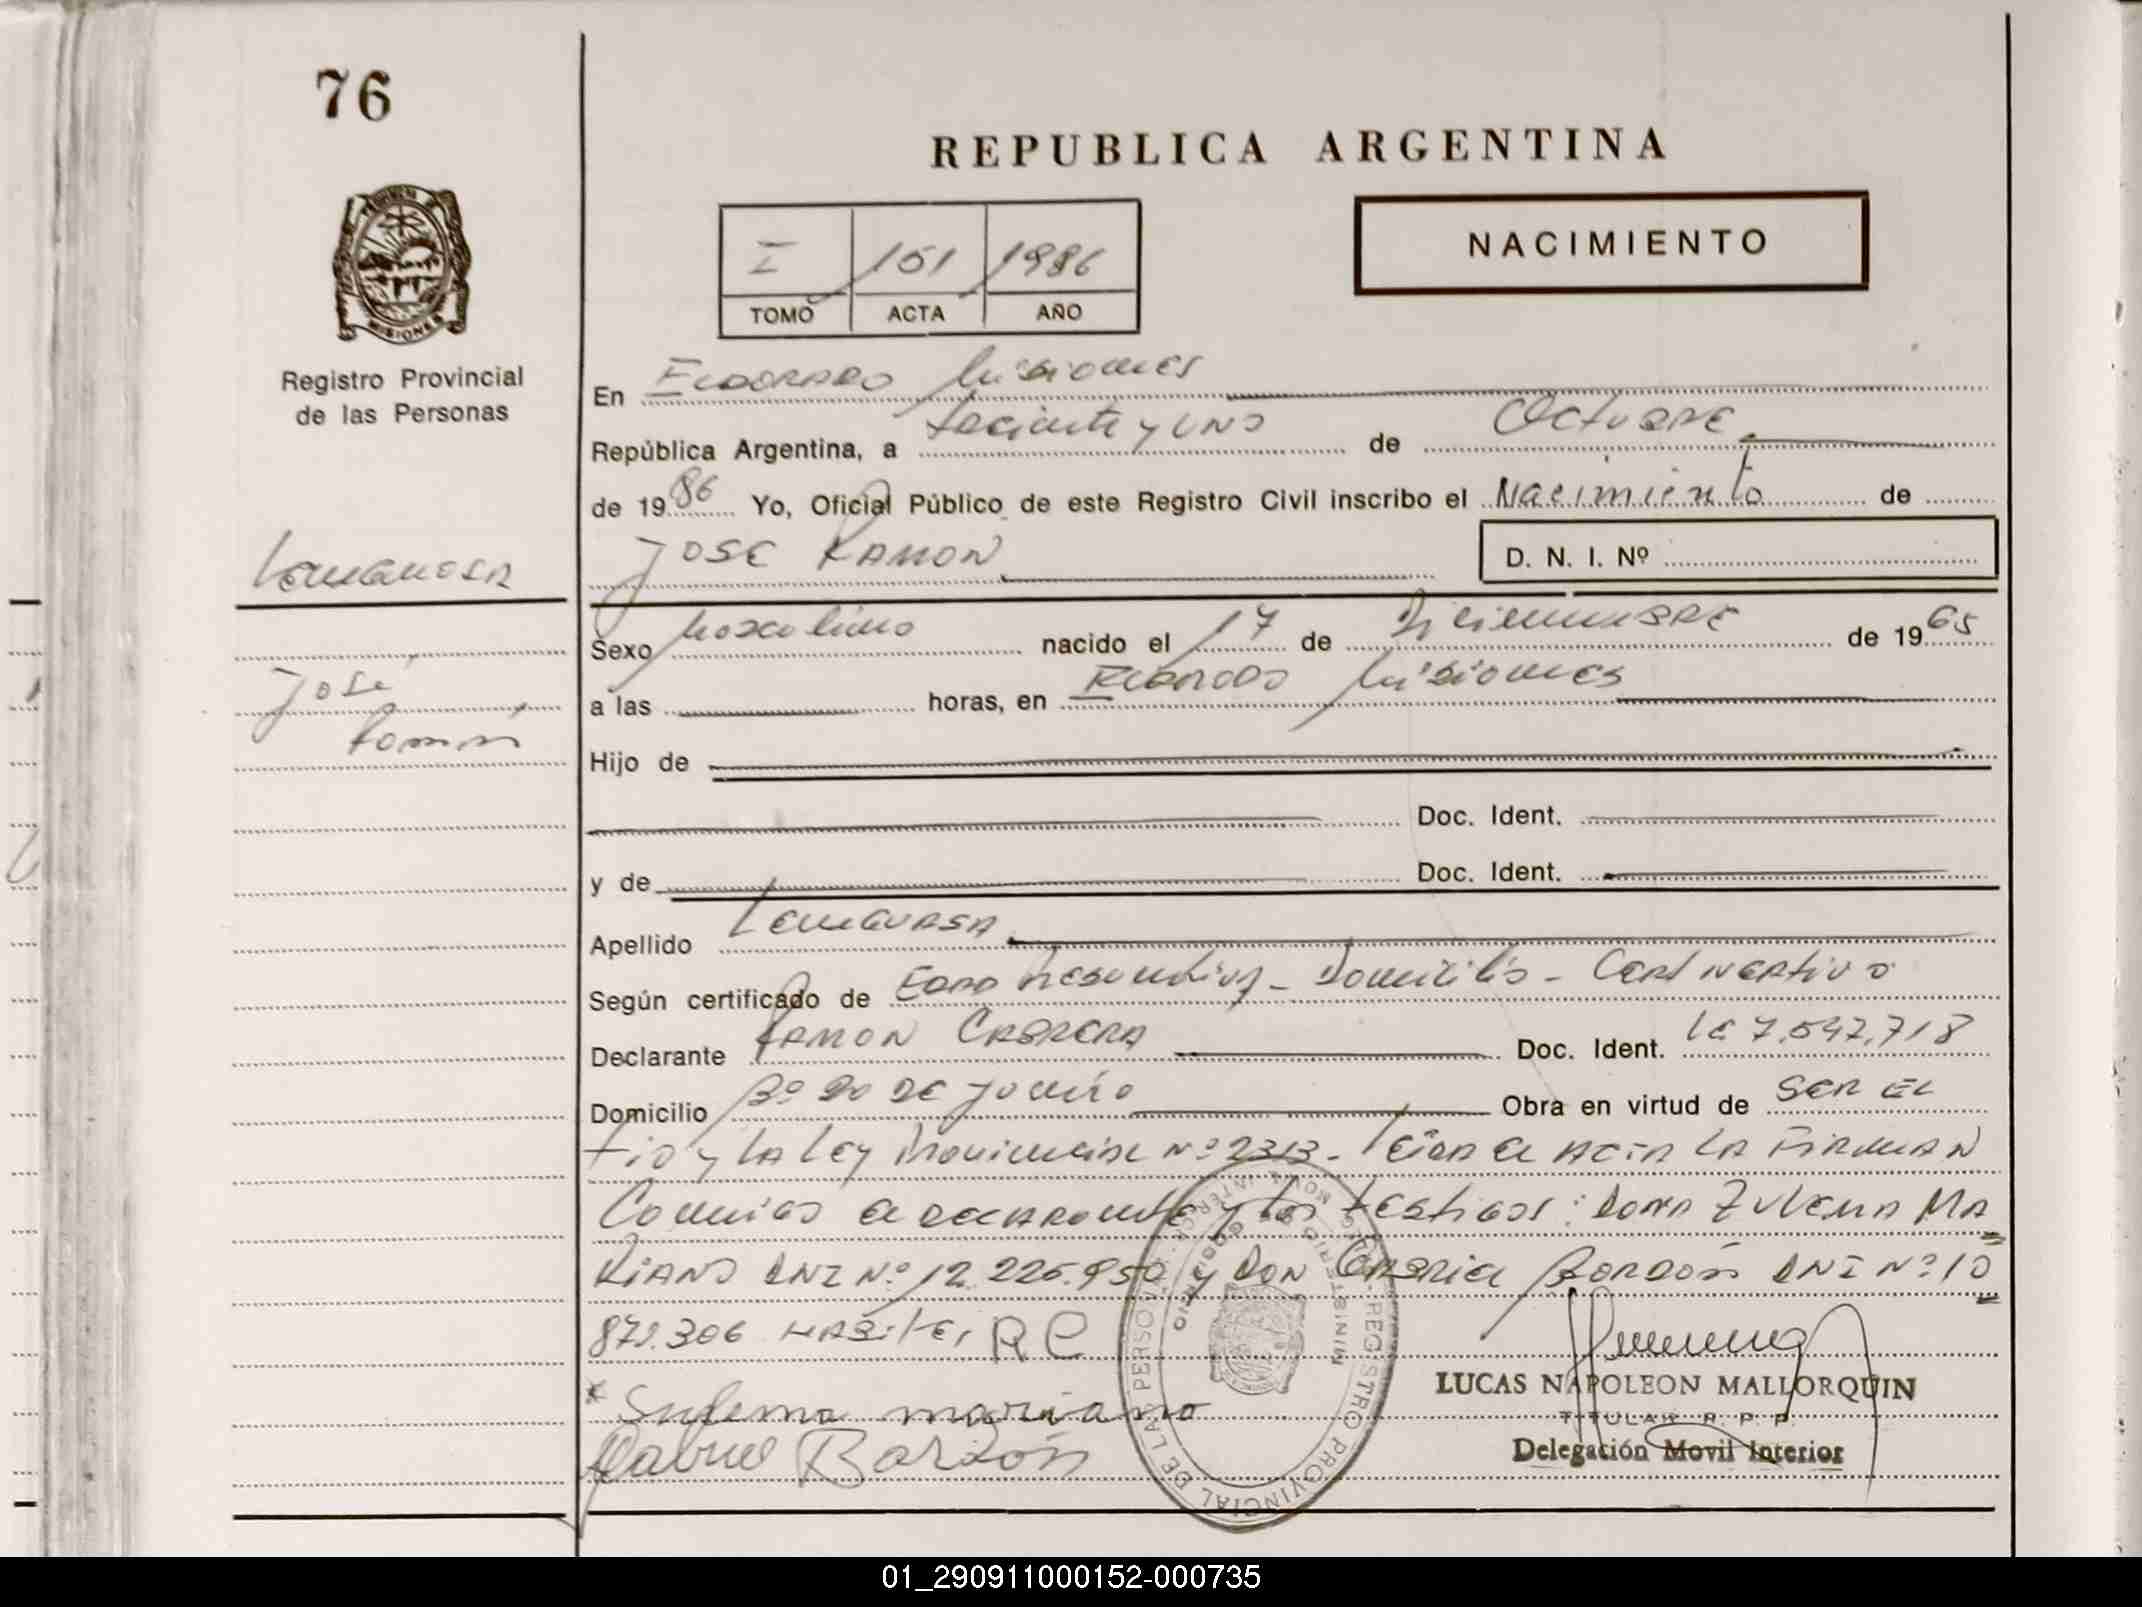 76
REPUBLICA ARGENTINA
NACIMIENTO
I 151 1986
TOMO ACTA AÑO
MISIONES
Registro Provincial
de las Personas
En ELDORADO Misiones
República Argentina, a treinta y UNO de OCTUBRE
de 1986 Yo, Oficial Público de este Registro Civil inscribo el Nacimiento de
JOSE RAMON D. N. I. Nº
Sexo Masculino nacido el 17 de Diciembre de 1965
José
a las horas, en Eldorado Misiones
Ramón
Hijo de
Doc. Ident.
y de Doc. Ident.
Apellido
Según certificado de Edad Presuntiva - Domicilio - Cert Negativo
Declarante RAMON CABRERA Doc. Ident. LE 7.547.718
Domicilio Bº 20 DE Junio Obra en virtud de SER EL
tio y LA Ley Provincial Nº 2313 - Leida el ACTA LA FIRMAN
Conmigo el declarante y los testigos: DOÑA ZULEMA MA
RIANO DNI Nº 12.225.950 y DON GABRIEL Bordón DNI Nº 10
872.306 HABILES, R C
* Sulema mariano
Gabriel Bordón
LUCAS NAPOLEON MALLORQUIN
TITULAR R. P. P.
Delegación Movil Interior
REGISTRO PROVINCIAL DE LAS PERSONAS
MINISTERIO GOBIERNO
MOVIL INTERIOR
01_290911000152-000735